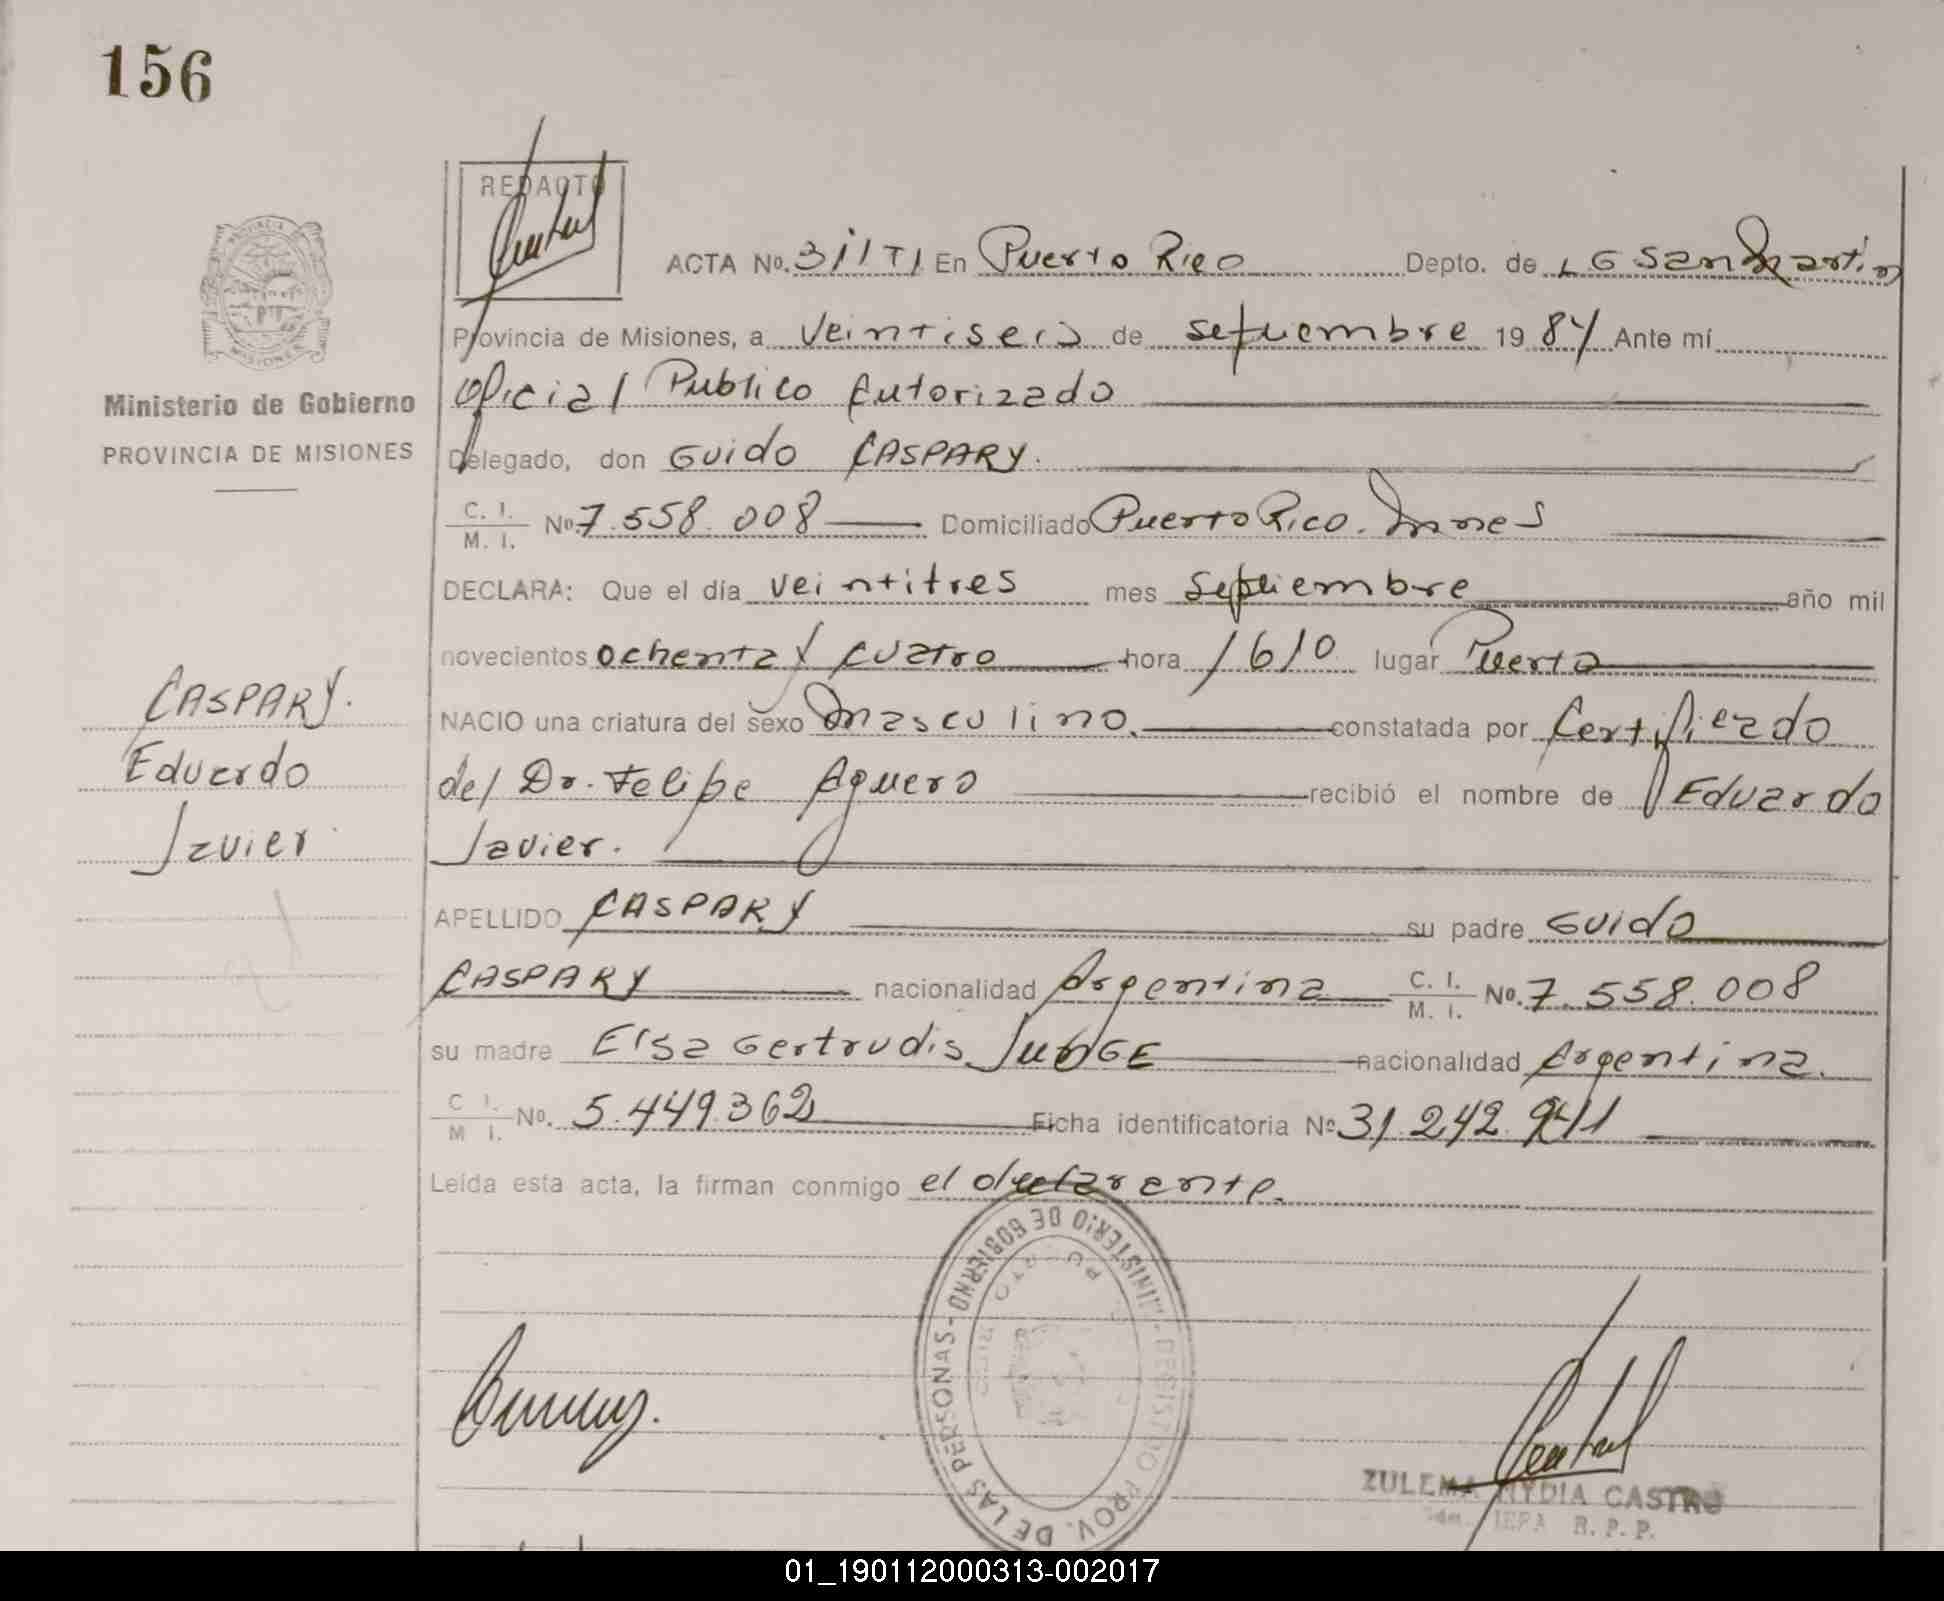 156
REDACTO
ACTA No. 311 TI En Puerto Rico Depto. de LG San Martin
Provincia de Misiones, a veintiseis de septiembre 19 84 Ante mí
Oficial Publico Autorizado
Delegado, don Guido CASPARY.
C. I. M. I. No. 7.558.008 Domiciliado Puerto Rico. Mnes
DECLARA: Que el día veintitres mes septiembre año mil
novecientos ochenta y cuatro hora 1610 lugar Puerto
NACIO una criatura del sexo masculino. constatada por Certificado
del Dr. Felipe Aguero recibió el nombre de Eduardo
Javier.
APELLIDO CASPARY su padre Guido
CASPARY nacionalidad Argentina C. I. M. I. No. 7.558.008
su madre Elsa Gertrudis JUNGE nacionalidad Argentina.
C I. M I. No. 5.449.362 Ficha identificatoria No 31.242.941
Leída esta acta, la firman conmigo el declarante.
Ministerio de Gobierno
PROVINCIA DE MISIONES
CASPARY.
Eduardo
Javier
MINISTERIO DE GOBIERNO - REGISTRO PROV. DE LAS PERSONAS -
PUERTO RICO
ZULEMA NYDIA CASTRO
R. P. P.
01_190112000313-002017